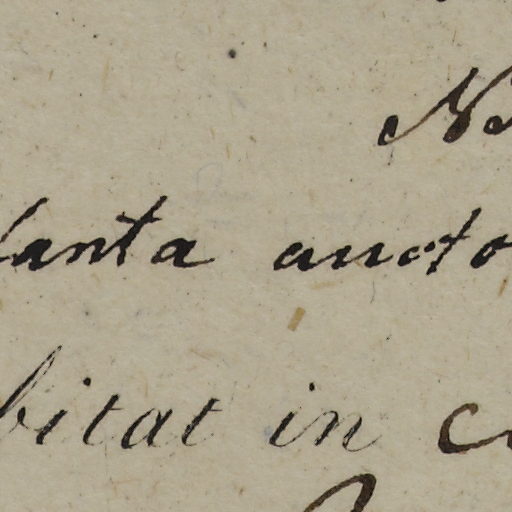 N
lanta aucto
bitat in c